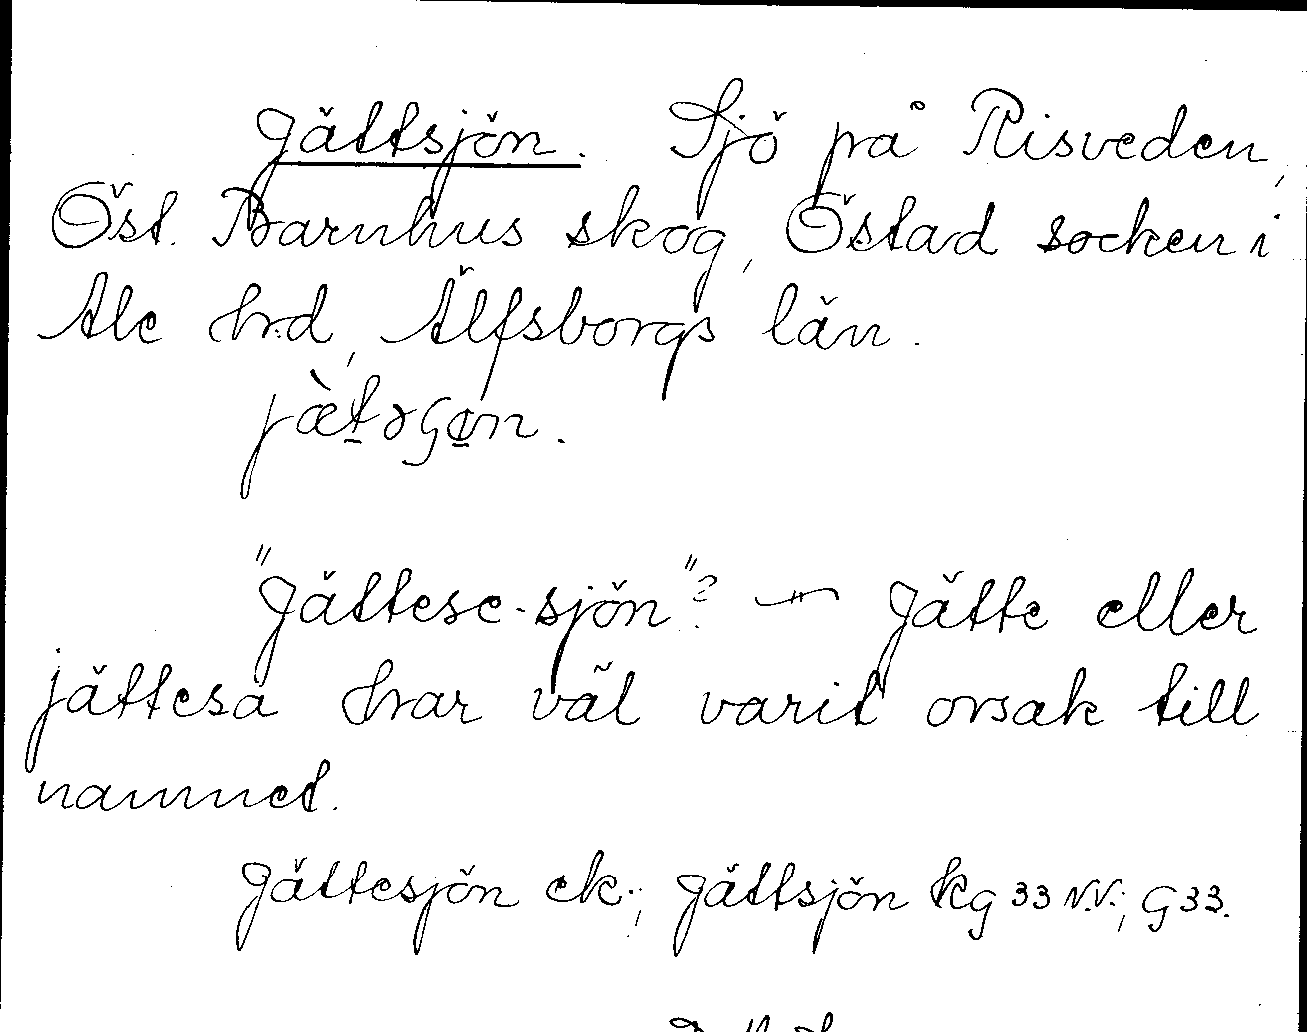 Jättsjön. Sjö på Risveden,
Öst. Barnhus skog, Östad socken i
Ale hrd, Älfsborgs län.
jæ̀təɕøn.
"Jättese-sjön"? — Jätte eller
jättesa har väl varit orsak till
namnet.
Jättesjön ek.; Jättsjön kg 33 N.V.; G 33.